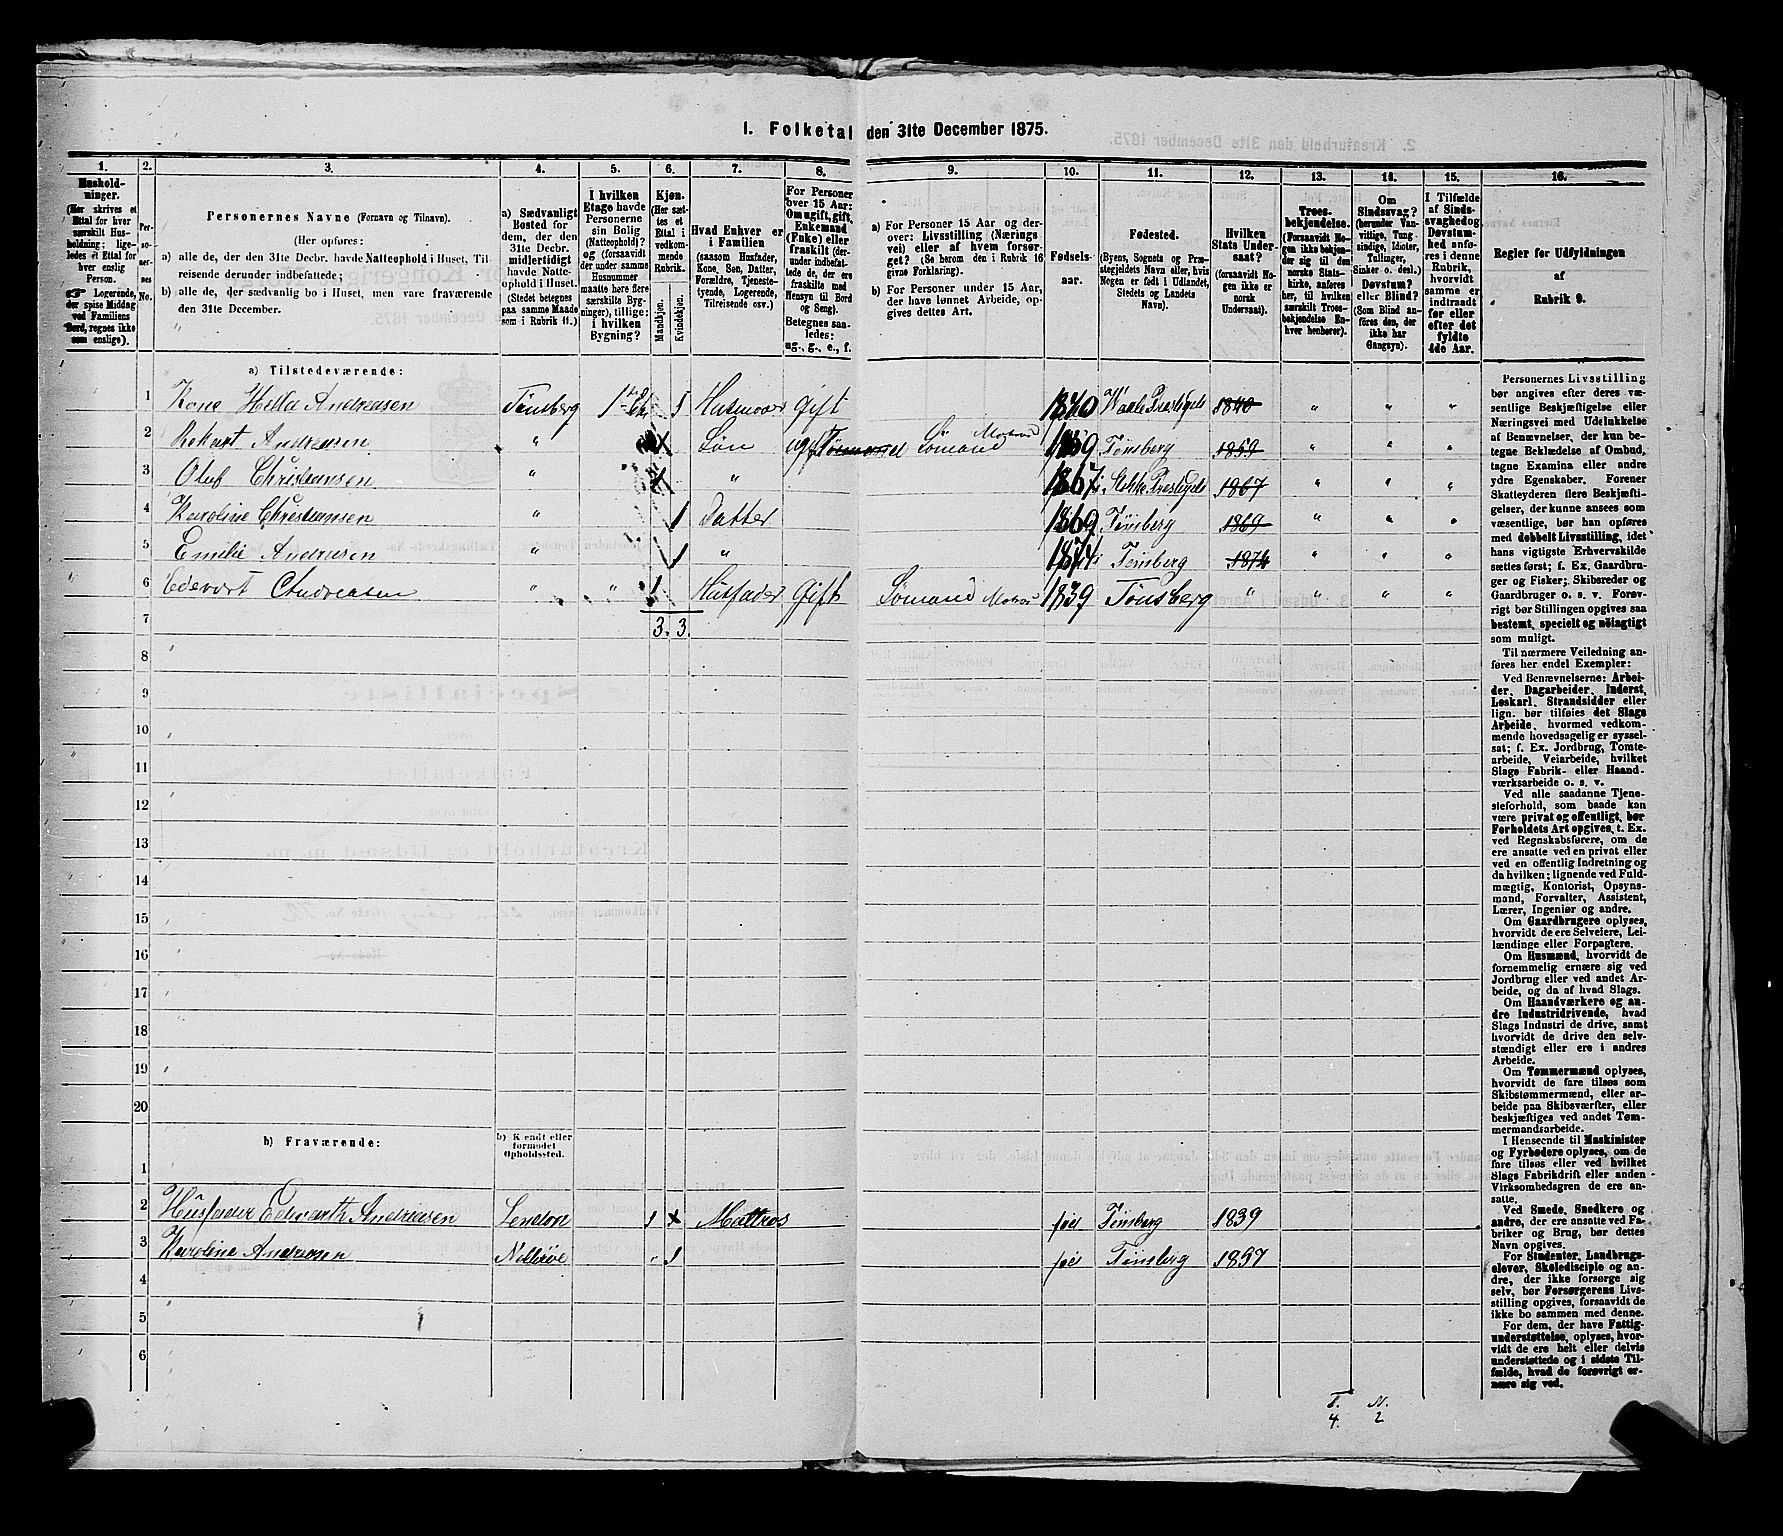 1. Folketal den 31te December 1875.
1. 2. 3. 4. 5. 6. 7. 8. 9. 10. 11. 12. 13. 14. 15. 16.
Husholdninger.
(Her skrives et
Ettal for hver
særskilt Husholdning;
ligeledes et Ettal for
hver enslig
Person.
☞ Logerende,
der spise Middag
ved Familiens
Bord, regnes ikke
som enslige).
Personernes No.
Personernes Navne (Fornavn og Tilnavn).
(Her opføres:
a) alle de, der den 31te Decbr. havde Natteophold i Huset, Tilreisende derunder indbefattede;
b) alle de, der sædvanlig bo i Huset, men vare fraværende
den 31te December.
a) Sædvanligt
Bosted for
dem, der den
31te Decbr.
midlertidigt
havde Natteophold
i Huset.
(Stedet betegnes
paa samme Maade
som i Rubrik 11.)
I hvilken
Etage havde
Personerne
sin Bolig
(Natteophold)?
og (forsaavidt
der under samme
Husnummer
maatte høre flere
særskilte Bygninger),
tillige:
i hvilken
Bygning?
Kjøn.
(Her sættes
et
Ettal i
vedkommende
Rubrik.)
Mandkjøn.
Kvindekjøn.
Hvad Enhver er
i Familien
(saasom Husfader,
Kone, Søn, Datter,
Forældre, Tjenestetyende,
Logerende,
Tilreisende osv.)
For Personer
over 15 Aar:
Om ugift, gift,
Enkemand
(Enke) eller
fraskilt (derunder
indbefattede
de, der ere
fraskilte med
Hensyn til Bord
og Seng).
Betegnes saaledes:
ug., g., e., f.
a) For Personer 15 Aar og derover:
Livsstilling (Næringsvei)
eller af hvem forsørget?
(Se herom den i Rubrik 16
givne Forklaring).
b) For Personer under 15 Aar,
der have lønnet Arbeide, opgives
dettes Art.
Fødselsaar.
Fødested.
(Byens, Sognets og Præstegjeldets
Navn eller, hvis
Nogen er født i Udlandet,
Stedets og Landets
Navn).
Hvilken
Stats Undersaat?
(forsaavidt Nogen
ikke er
norsk
Undersaat).
Troesbekjendelse.
(Forsaavidt Nogen
ikke bekjender
sig til den
norske Statskirke,
anføres
her, til hvilken
særskilt Troesbekjendelse
Enhver
henhører).
Om
Sindssvag?
(herunder Vanvittige,
Tungsindige,
Idioter,
Tullinger,
Sinker o. desl.)
Døvstum?
eller Blind?
(Som Blind anføres
den, der
ikke har
Gangsyn).
I Tilfælde
af Sindssvaghed
og
Døvstumhed
anføres
i denne
Rubrik,
hvorvidt
samme er
indtraadt
før eller
efter det
fyldte
4de Aar.
Regler for Udfyldningen
af
Rubrik 9.
a) Tilstedeværende:
1 Kone Hella Andreasen Tønsberg 1 Husmoer Gift 1840 1840 " " "
2 Andreasen " Søn ug Sømand Matros Tønsberg 1859 " " "
3 Oluf Christiansen " " 1867 1867 " " "
4 Karoline Christiansen " 1 Datter 1869 Tønsberg 1869 " " "
5 Emilie Andreasen " 1 " 1874 Tønsberg 1874 " " "
6 Edevart Andreasen " " 1 Husfader Gift Sømand Matros 1839 Tønsberg " " " "
7 3. 3.
8
9
10
11
12
13
14
15
16
17
18
19
20
b) Fraværende:
b) Kendt eller
formodet
Opholdssted.
1
2 Husfader Edwarth Andreasen London 1 x Mattros Tønsberg 1839
3 Karoline Andreasen Nøtterøe " 1 Tønsberg 1857
4
5
6
Personernes Livsstilling
bør angives efter deres væsentlige
Beskjæftigelse eller
Næringsvei med Udelukkelse
af Benævnelser, der kun betegne
Beklædelse af Ombud,
tagne Examina eller andre
ydre Egenskaber. Forener
Skatteyderen flere Beskjæftigelser,
der kunne ansees som
væsentlige, bør han opføres
med dobbelt Livsstilling, idet
hans vigtigste Erhvervskilde
sættes først; f. Ex. Gaardbruger
og Fisker; Skibsreder og
Gaardbruger o. s. v. Forøvrigt
bør Stillingen opgives saa
bestemt, specielt og nøiagtigt
som muligt.
Til nærmere Veiledning anføres
her endel Exempler:
Ved Benævnelserne: Arbeider,
Dagarbeider, Inderst,
Løskarl, Strandsidder eller
lign. bør tilføies det Slags
Arbeide, hvormed vedkommende
hovedsagelig er sysselsat;
f. Ex. Jordbrug, Tomtearbeide,
Veiarbeide, hvilket
Slags Fabrik- eller Haandværksarbeide
o. s. v.
Ved alle saadanne Tjenesteforhold,
som baade kan
være privat og offentligt, bør
Forholdets Art opgives, t. Ex.
ved Regnskabsførere, om de
ere ansatte ved en privat eller
ved en offentlig Indretning og
da hvilken; lignende ved Fuldmægtig,
Kontorist, Opsynsmand,
Forvalter, Assistent,
Lærer, Ingeniør og andre.
Om Gaardbrugere oplyses,
hvorvidt de ere Selveiere, Leilændinge
eller Forpagtere.
Om Husmænd, hvorvidt de
fornemmelig ernære sig ved
Jordbrug eller ved andet Arbeide,
og da af hvad Slags.
Om Haandværkere og andre
Industridrivende, hvad
Slags Industri de drive, samt
hvorvidt de drive den selvstændigt
eller ere i andres
Arbeide.
Om Tømmermænd oplyses,
hvorvidt de fare tilsøs som
Skibstømmermænd, eller arbeide
paa Skibsværfter, eller
beskjæftiges ved andet Tømmermandsarbeide.
I Henseende til Maskinister
og Fyrbødere oplyses, om de
fare tilsøs eller ved hvilket
Slags Fabrikdrift eller anden
Virksomhedsgren de ere ansatte.
Ved Smede, Snedkere og
andre, der ere ansatte ved Fabriker
og Brug, bør dettes
Navn opgives.
For Studenter, Landbrugselever,
Skoledisciple og andre,
der ikke forsørge sig
selv, bør Forsørgerens Livsstilling
opgives, forsaavidt de
ikke bo sammen med denne.
For dem, der have Fattigunderstøttelse,
oplyses, hvorvidt
de ere helt eller delvis
understøttede og i sidste Tilfælde,
hvad de forøvrigt ernære
sig ved.
T. N.
4. 2